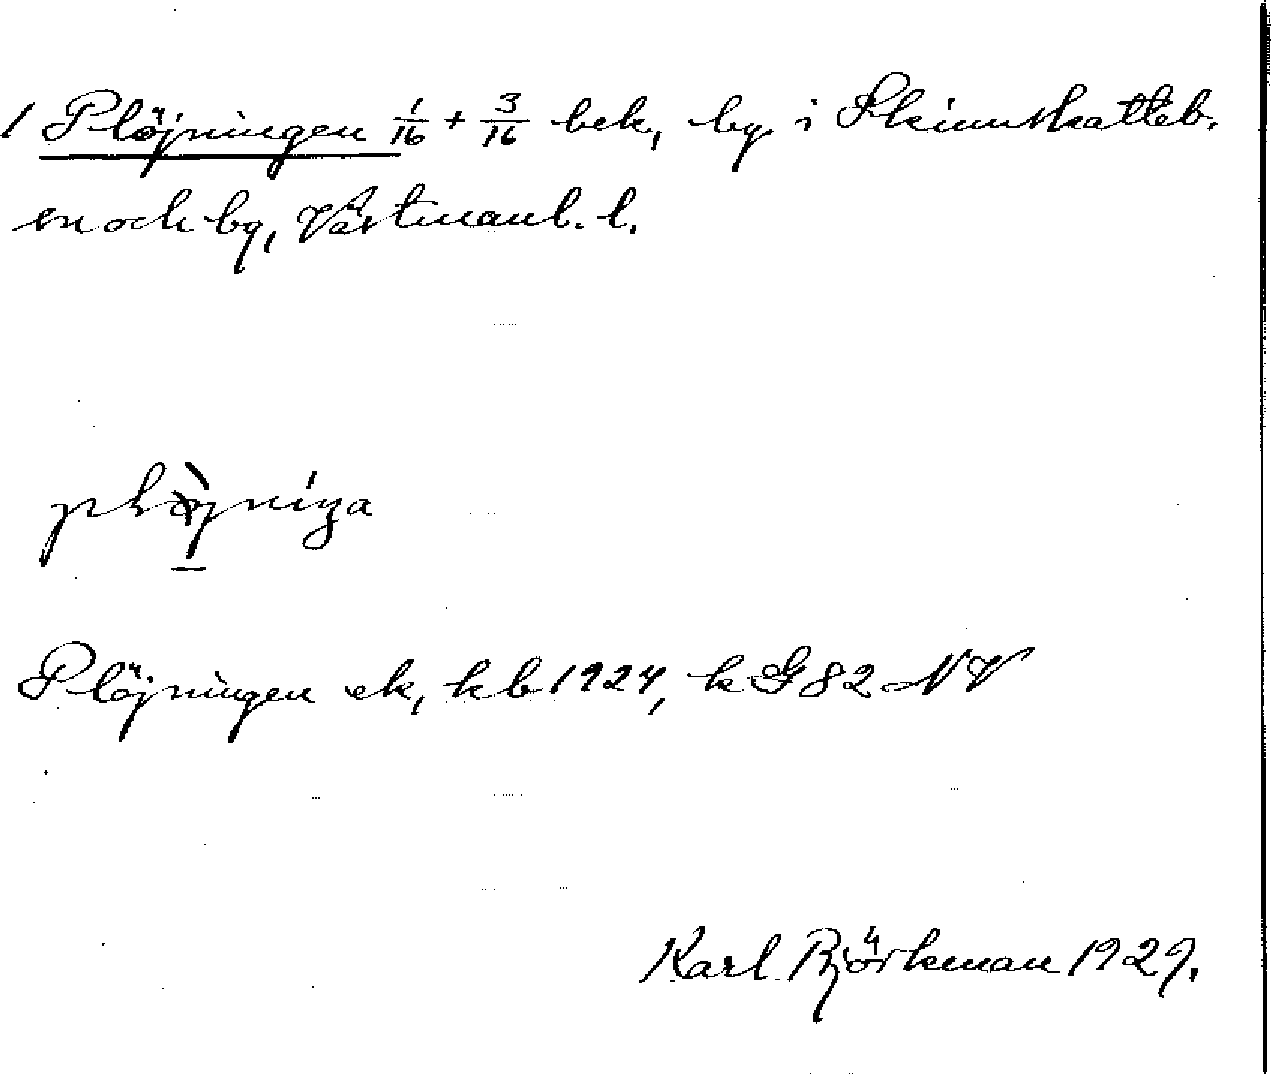 1 Plöjningen 1/16 + 3/16 bek, by i Skinnskatteb.
sn och bg, Västmanl. l.
plø̀jniŋa
Plöjningen ek, kb 1924, k G 82 NV
Karl Björkman 1929.